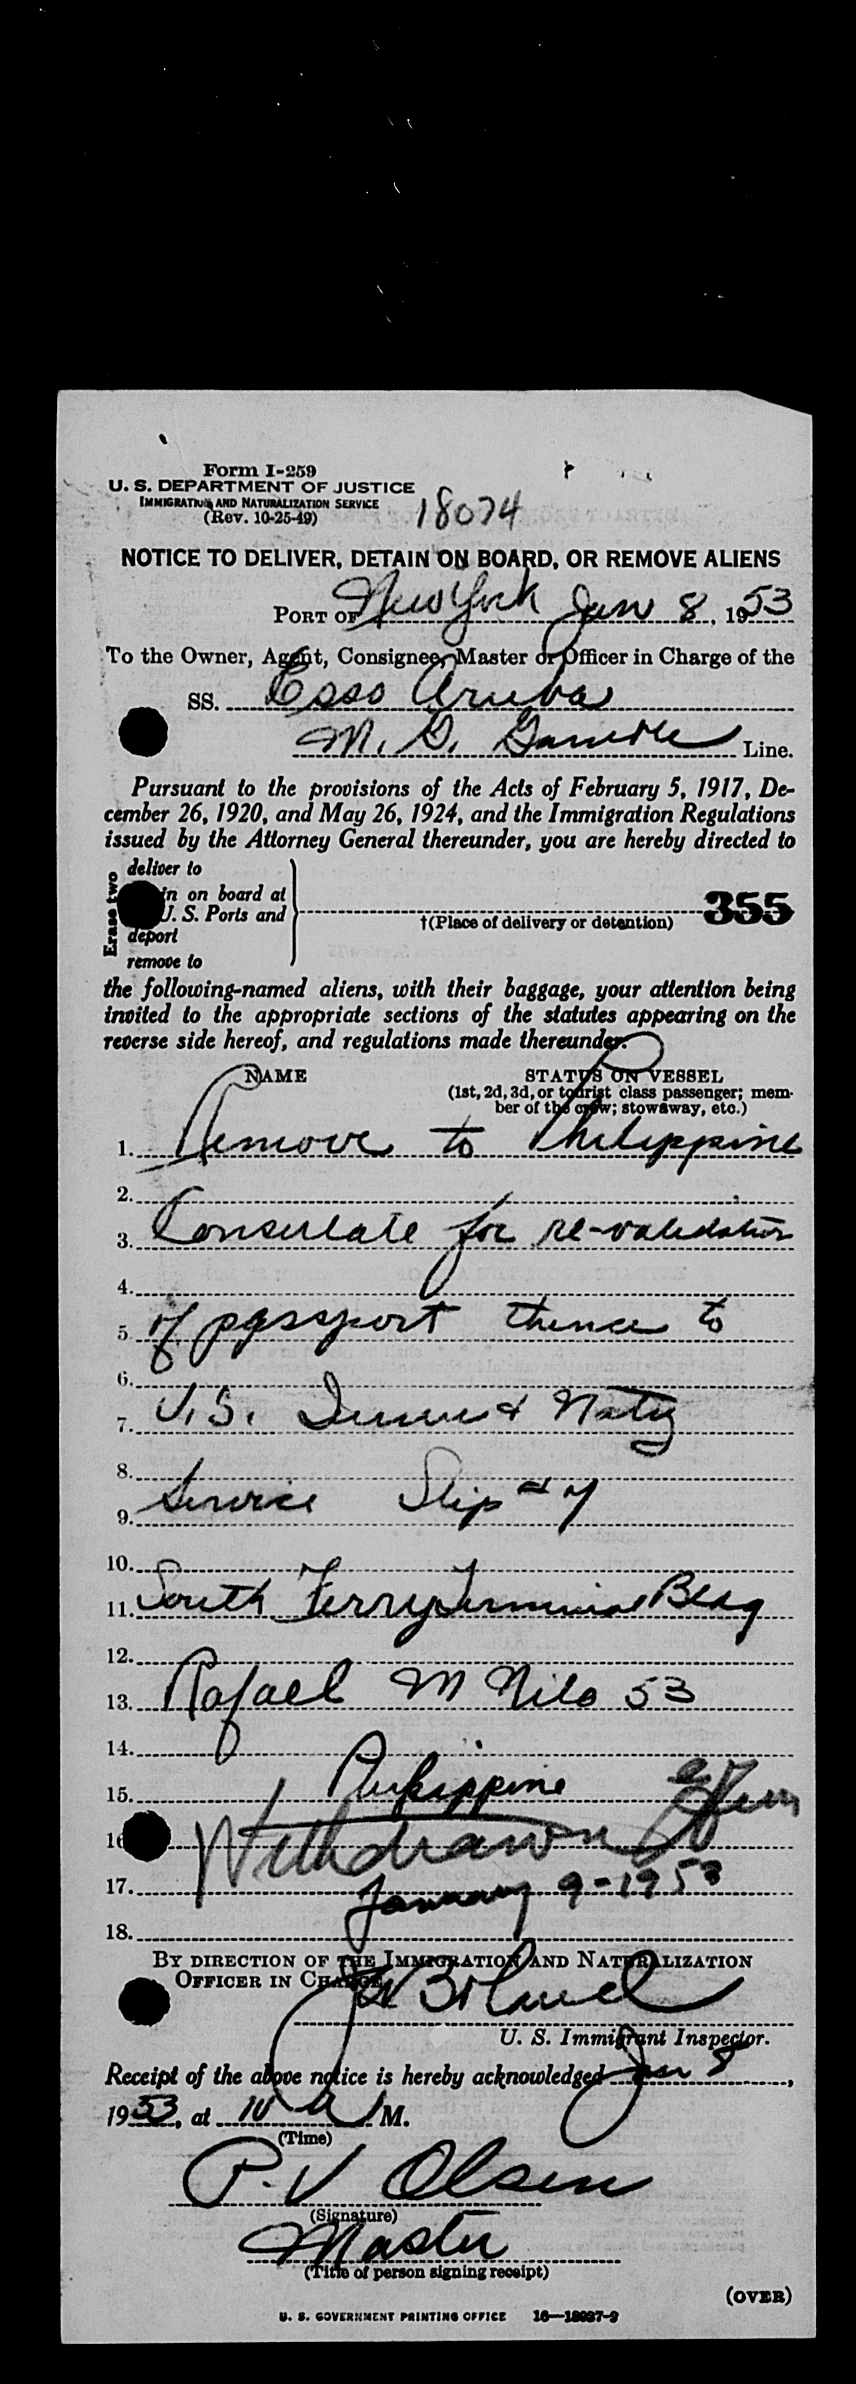 Form I-259
U. S. DEPARTMENT OF JUSTICE
IMMIGRATION AND NATURALIZATION SERVICE
(Rev. 10-25-49)
18074
NOTICE TO DELIVER, DETAIN ON BOARD, OR REMOVE ALIENS
PORT OF New York Jan 8, 1953
To the Owner, Agent, Consignee, Master or Officer in Charge of the
SS. Esso Aruba
M. G. Line.
Pursuant to the provisions of the Acts of February 5, 1917, De-
cember 26, 1920, and May 26, 1924, and the Immigration Regulations
issued by the Attorney General thereunder, you are hereby directed to
Erase two
deliver to
in on board at
U. S. Ports and
deport
remove to
†(Place of delivery or detention)
355
the following-named aliens, with their baggage, your attention being
invited to the appropriate sections of the statutes appearing on the
reverse side hereof, and regulations made thereunder.
NAME STATUS ON VESSEL
(1st, 2d, 3d, or tourist class passenger; mem-
ber of the crew; stowaway, etc.)
1. Remove to Philippine
2.
3. Consulate for re-validation
4.
5. of passport thence to
6.
7. U.S. Immi & Natz
8.
9. Service Slip # 7
10.
11. South Ferry Terminal Bldg
12.
13. Rafael M Nilo 53
14.
15. Philippine
16 Withdrawn
17. January 9-1953
18.
BY DIRECTION OF THE IMMIGRATION AND NATURALIZATION
OFFICER IN CHARGE
U. S. Immigrant Inspector.
Receipt of the above notice is hereby acknowledged Jan 8,
1953, at 10 A M.
(Time)
P. V Olsen
(Signature)
Master
(Title of person signing receipt)
(OVER)
U. S. GOVERNMENT PRINTING OFFICE 16—18037-2